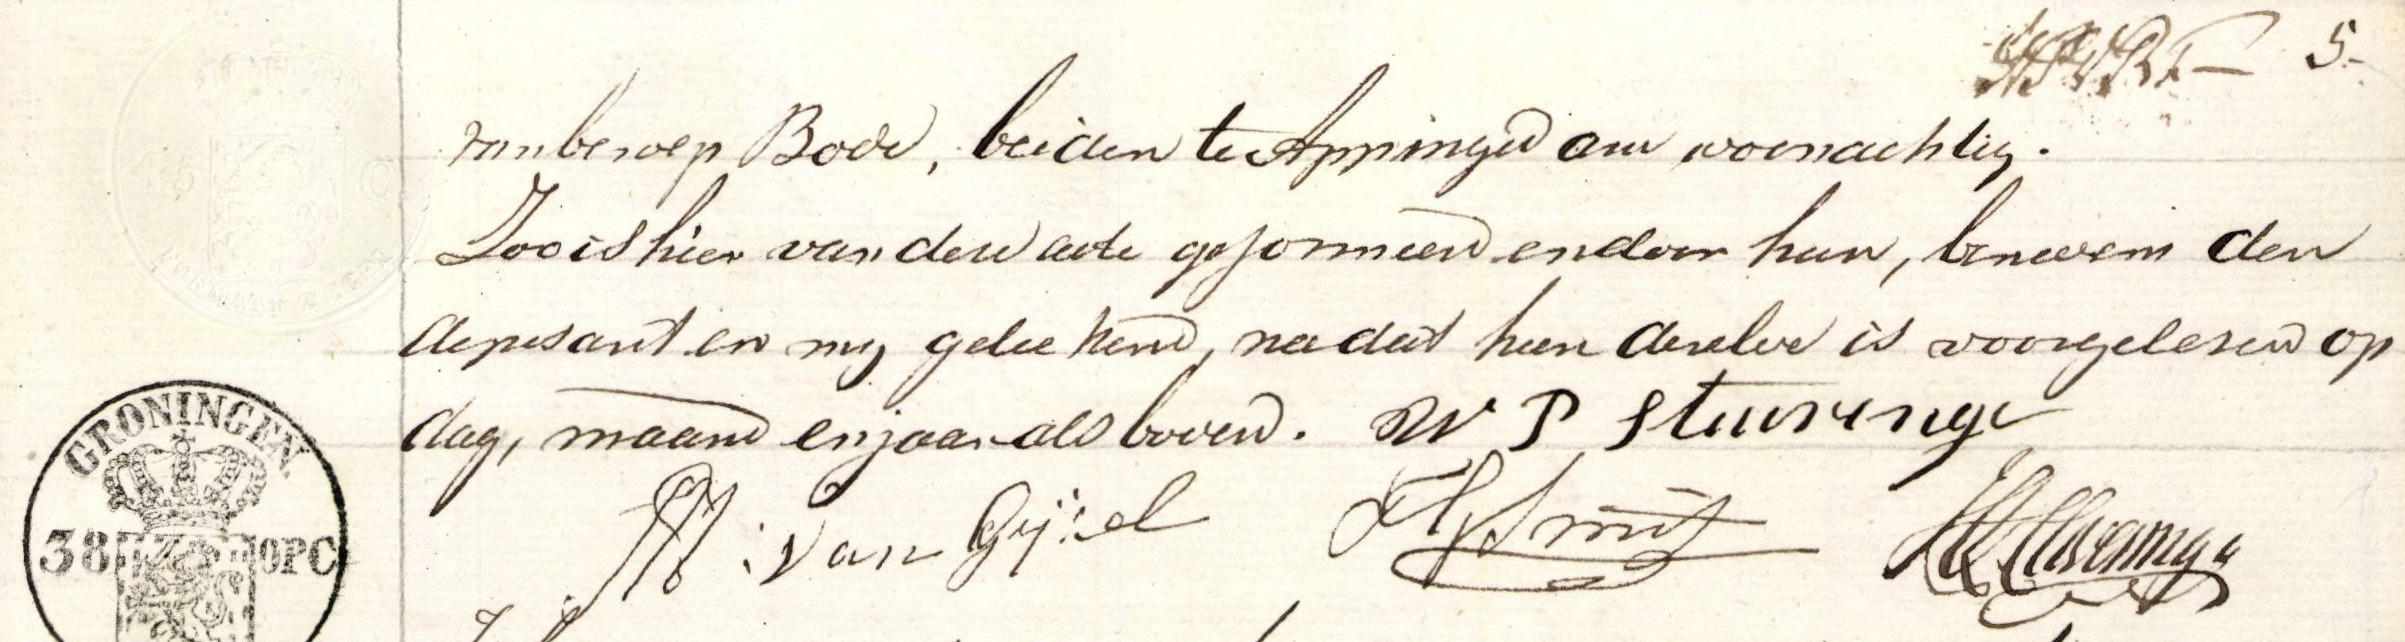 5.
van beroep Bode, beiden te Appingedam woonachtig.
Zoo is hier van deze acte geformeerd en door hen, benevens den
deposant en mij geteekend, nadat hen dezelve is voorgelezen op
dag, maand en jaar als boven. W P Stuivinga
van Gijzel Smit
GRONINGEN.
38 OPC